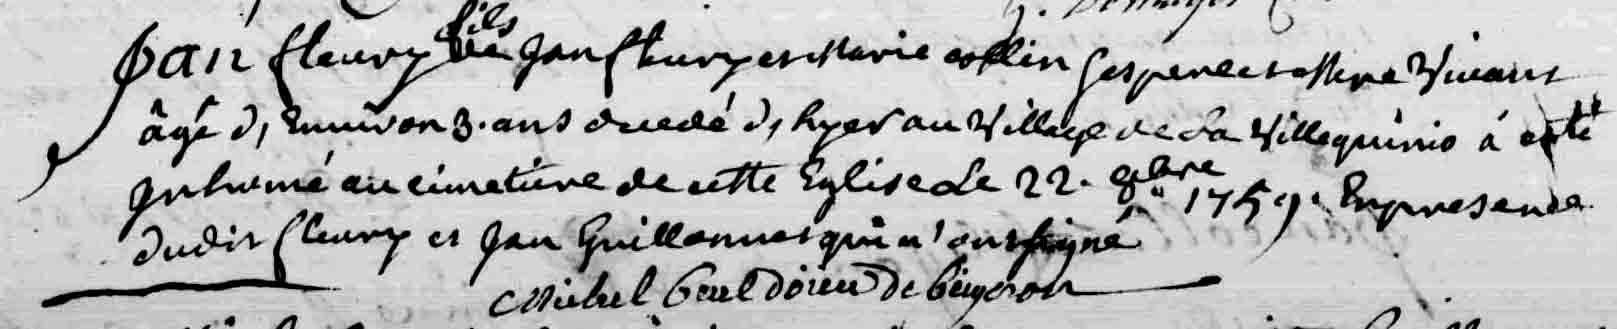 Jan fleury fils de Jan fleury et Marie collin ses pere et mere vivant
âgé d, Environ 3. ans decedé d, hyer au village de La villequinio á esté
inhumé au cimetiere de cette Eglise Le 22. 9bre 1759. En presence
dudit fleury et Jan Guillaumet qui n'ont signé
Michel